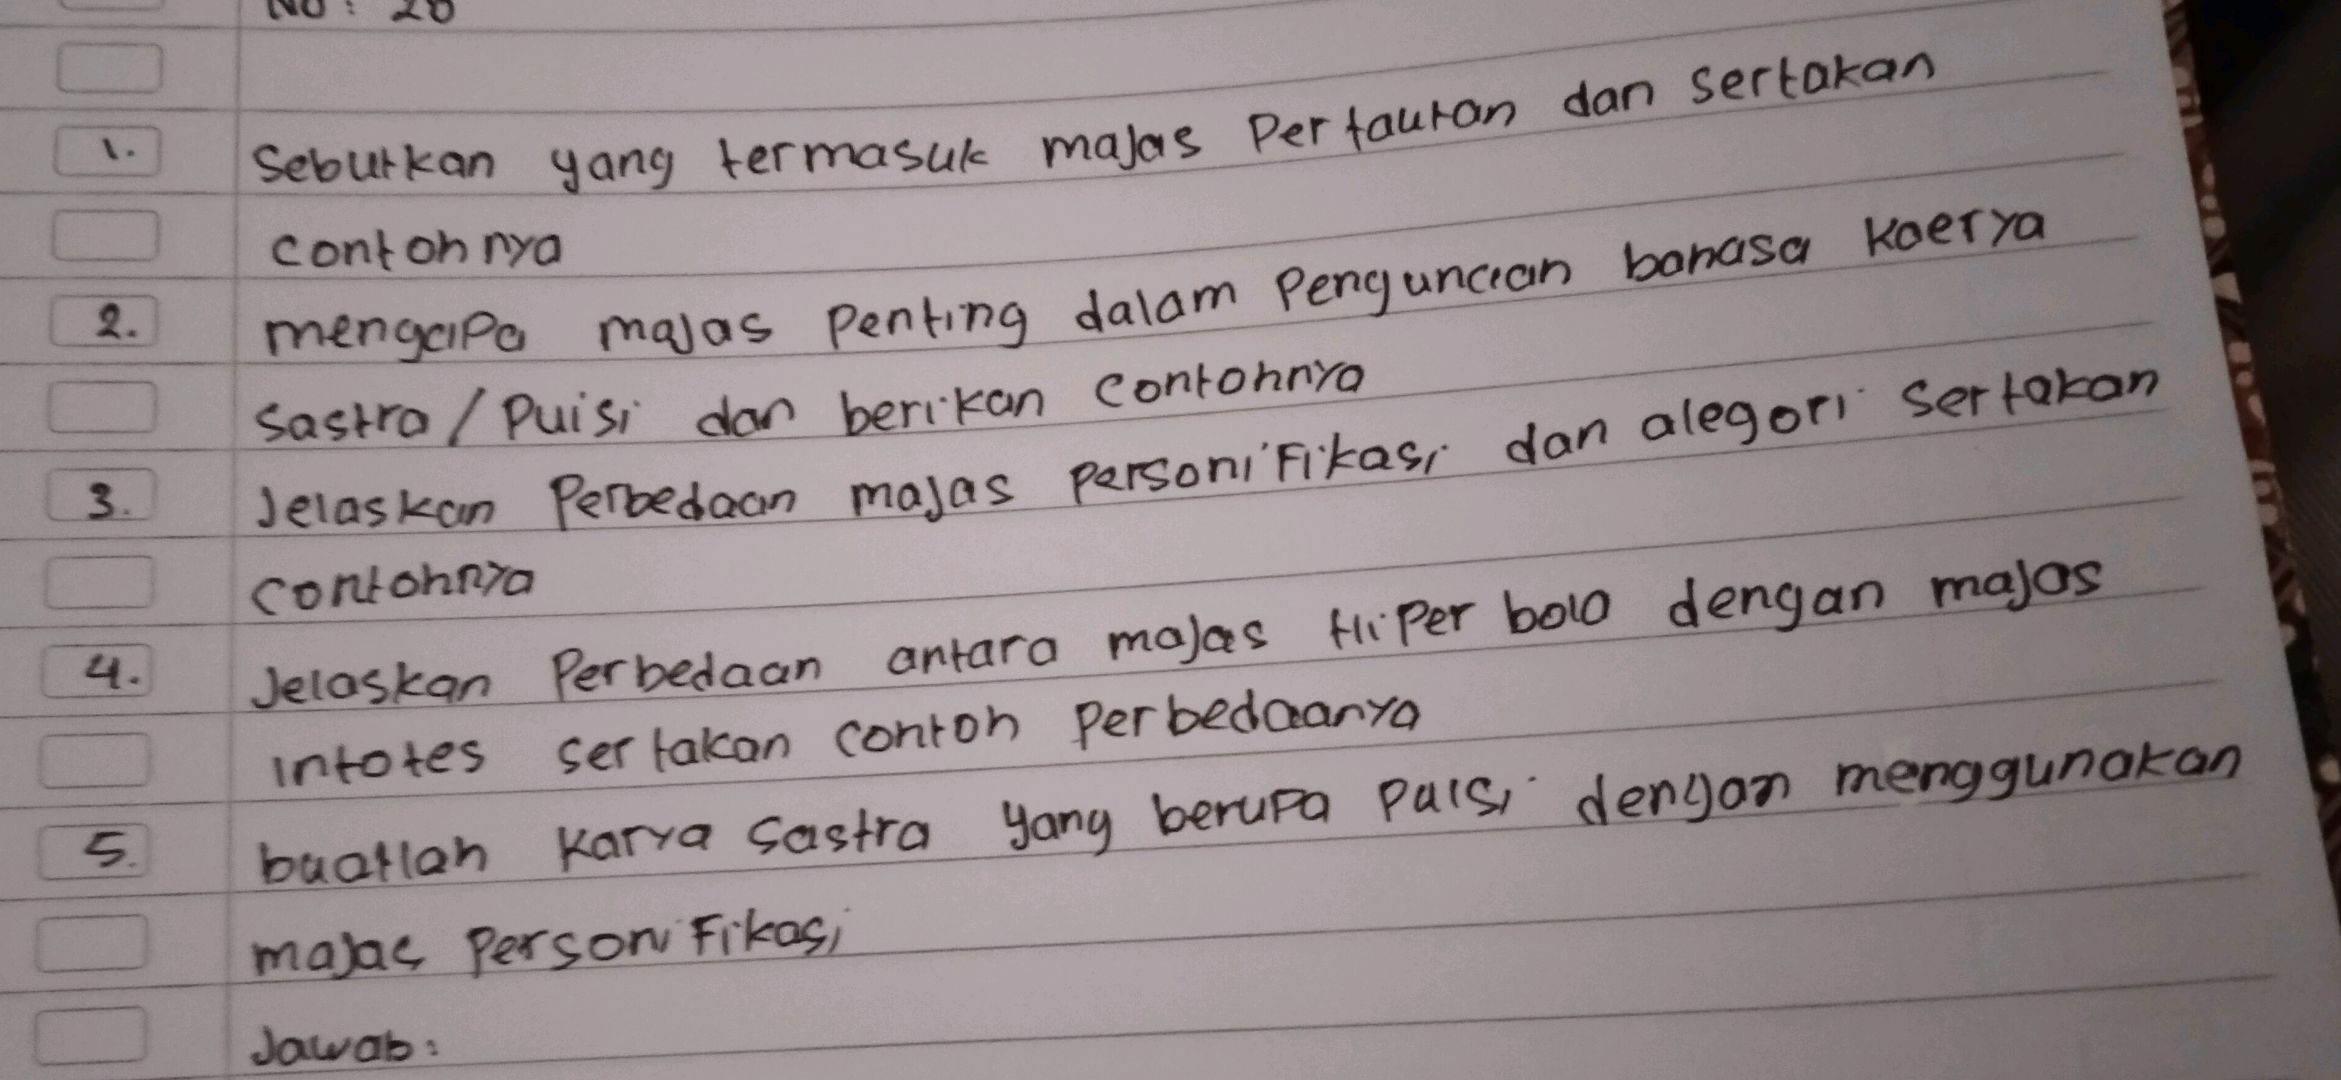 No : 20
1. Seburkan yang termasuk majas Pertautan dan sertakan
contohnya
2. mengapa majas Penting dalam Penguncian bahasa kaerya
Sastra / Puisi dan berikan contohnya
3. Jelaskan Perbedaan majas personifikasi dan alegori sertakan
contohnya
4. Jelaskan Perbedaan antara majas Hiperbolo dengan majas
intotes sertakan contoh perbedaanya
5. buatlah karya sastra yang berupa puisi dengan menggunakan
majas Personifikasi
Jawab: